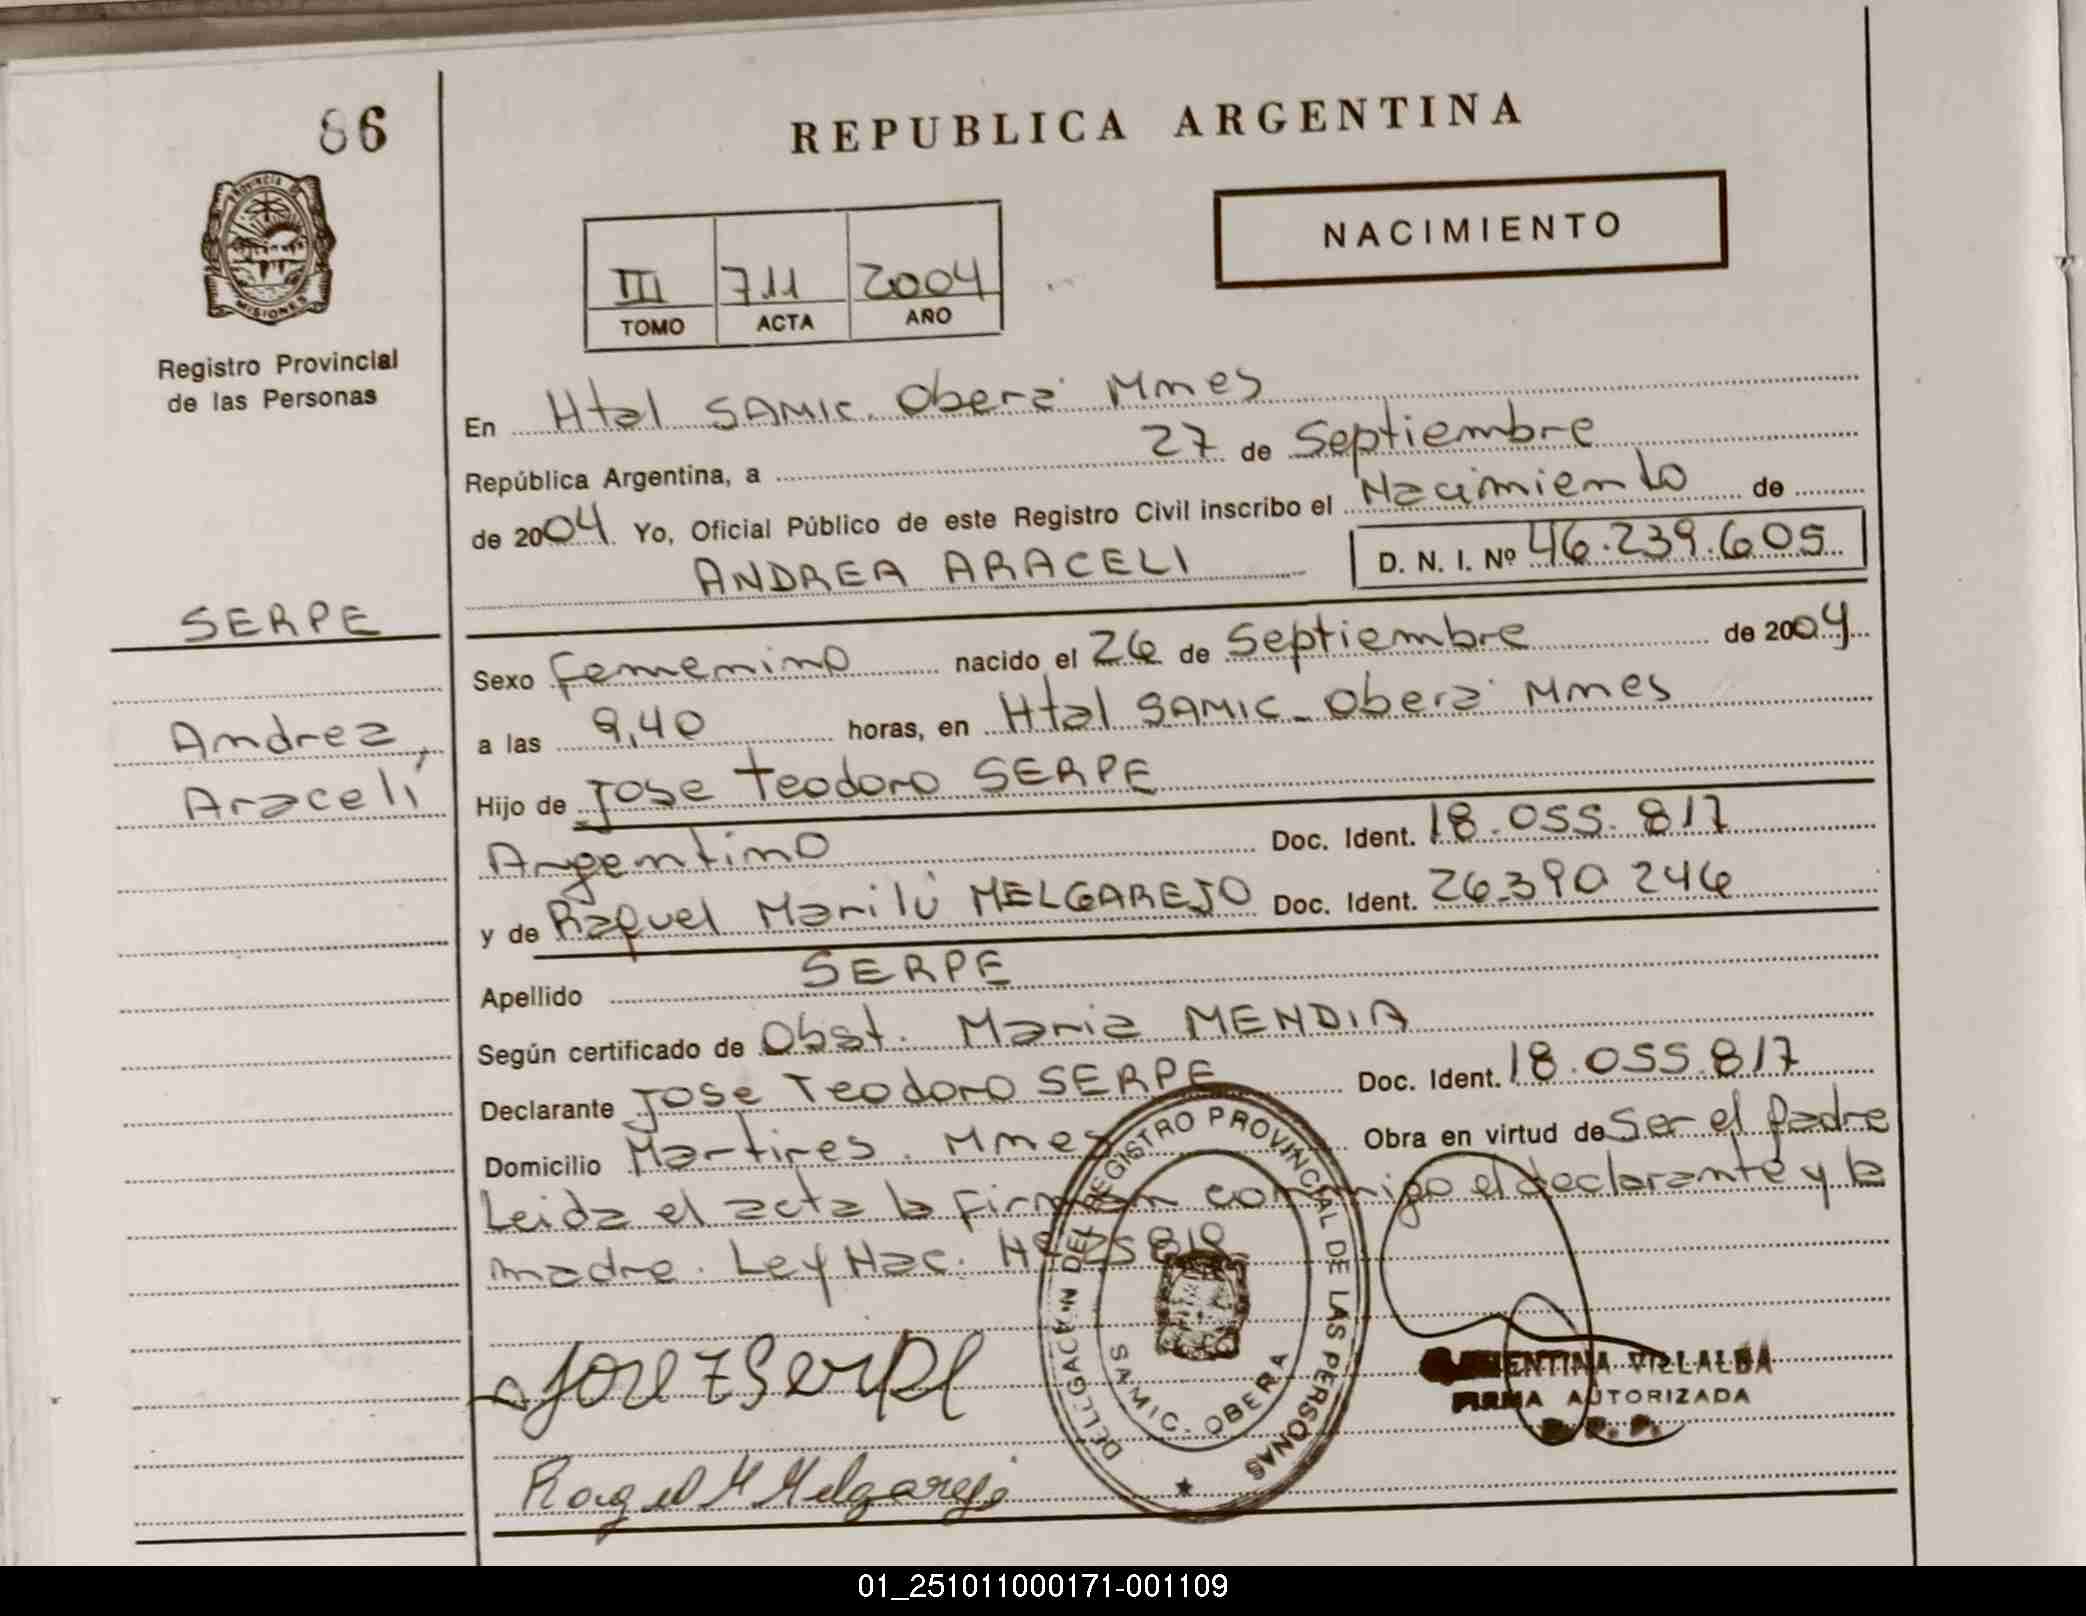 86
REPUBLICA ARGENTINA
PROVINCIA DE
MISIONES
NACIMIENTO
III 711 2004
TOMO ACTA AÑO
Registro Provincial
de las Personas
En Htal SAMIC. Oberá Mnes
República Argentina, a 27 de Septiembre
de 2004 Yo, Oficial Público de este Registro Civil inscribo el Nacimiento de
ANDREA ARACELI D. N. I. Nº 46.239.605
SERPE
Andrea
Araceli
Sexo Femenino nacido el 26 de Septiembre de 2004
a las 9,40 horas, en Htal SAMIC_ Oberá Mnes
Hijo de Jose Teodoro SERPE
Argentino Doc. Ident. 18.055.817
y de Raquel Marilú MELGAREJO Doc. Ident. 26.390.246
Apellido SERPE
Según certificado de Obst. Maria MENDIA
Declarante Jose Teodoro SERPE Doc. Ident. 18.055.817
Domicilio Martires. Mnes Obra en virtud de Ser el padre
Leida el acta la firman conmigo el declarante y la
madre. Ley Nac. Nº 25818
DELEGACION DEL REGISTRO PROVINCIAL DE LAS PERSONAS
SAMIC. OBERA
Jose T Serpe
VILLALBA
FIRMA AUTORIZADA
R. P. P.
Raquel M Melgarejo
01_251011000171-001109